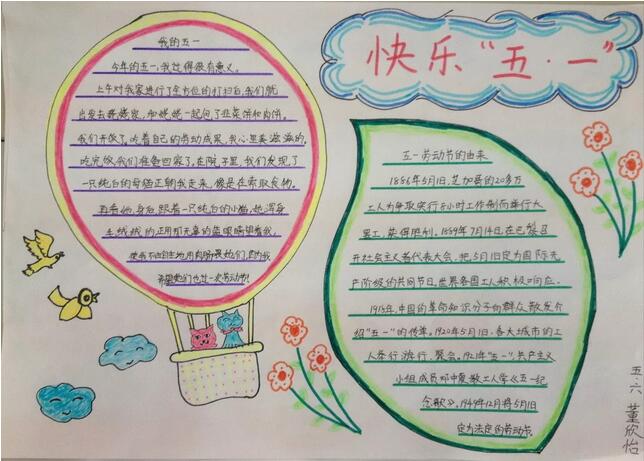 快乐“五·一”
我的五一
今年的五一,我过得很有意义。
上午对我家进行了全方位的打扫后,我们就
出发去姥姥家,和姥姥一起包了韭菜饼和肉饼。
我们开饭了。吃着自己的劳动成果,我心里美滋滋的。
吃完饭,我们准备回家了。在院子里,我们发现了
一只纯白的母猫正朝我走来,像是在索取食物。
再看她,身后跟着一只纯白的小猫,她浑身
毛绒绒的,正用那无辜的蓝眼睛望着我。
使我不由自主地用肉肠喂她们,因为我
希望她们也过一次劳动节!
五一劳动节的由来
1886年5月1日,芝加哥的20多万
工人为争取实行8小时工作制而举行大
罢工,获得胜利。1889年7月14日,在巴黎召
开社会主义者代表大会,把5月1日定为国际无
产阶级的共同节日,世界各国工人积极响应。
1918年,中国的革命知识分子向群众散发介
绍“五一”的传单。1920年5月1日,各大城市的工
人举行游行、聚会。1921年“五一”,共产主义
小组成员邓中夏教工人学《五一纪
念歌》。1949年12月将5月1日
定为法定的劳动节。
五.六 董欣怡